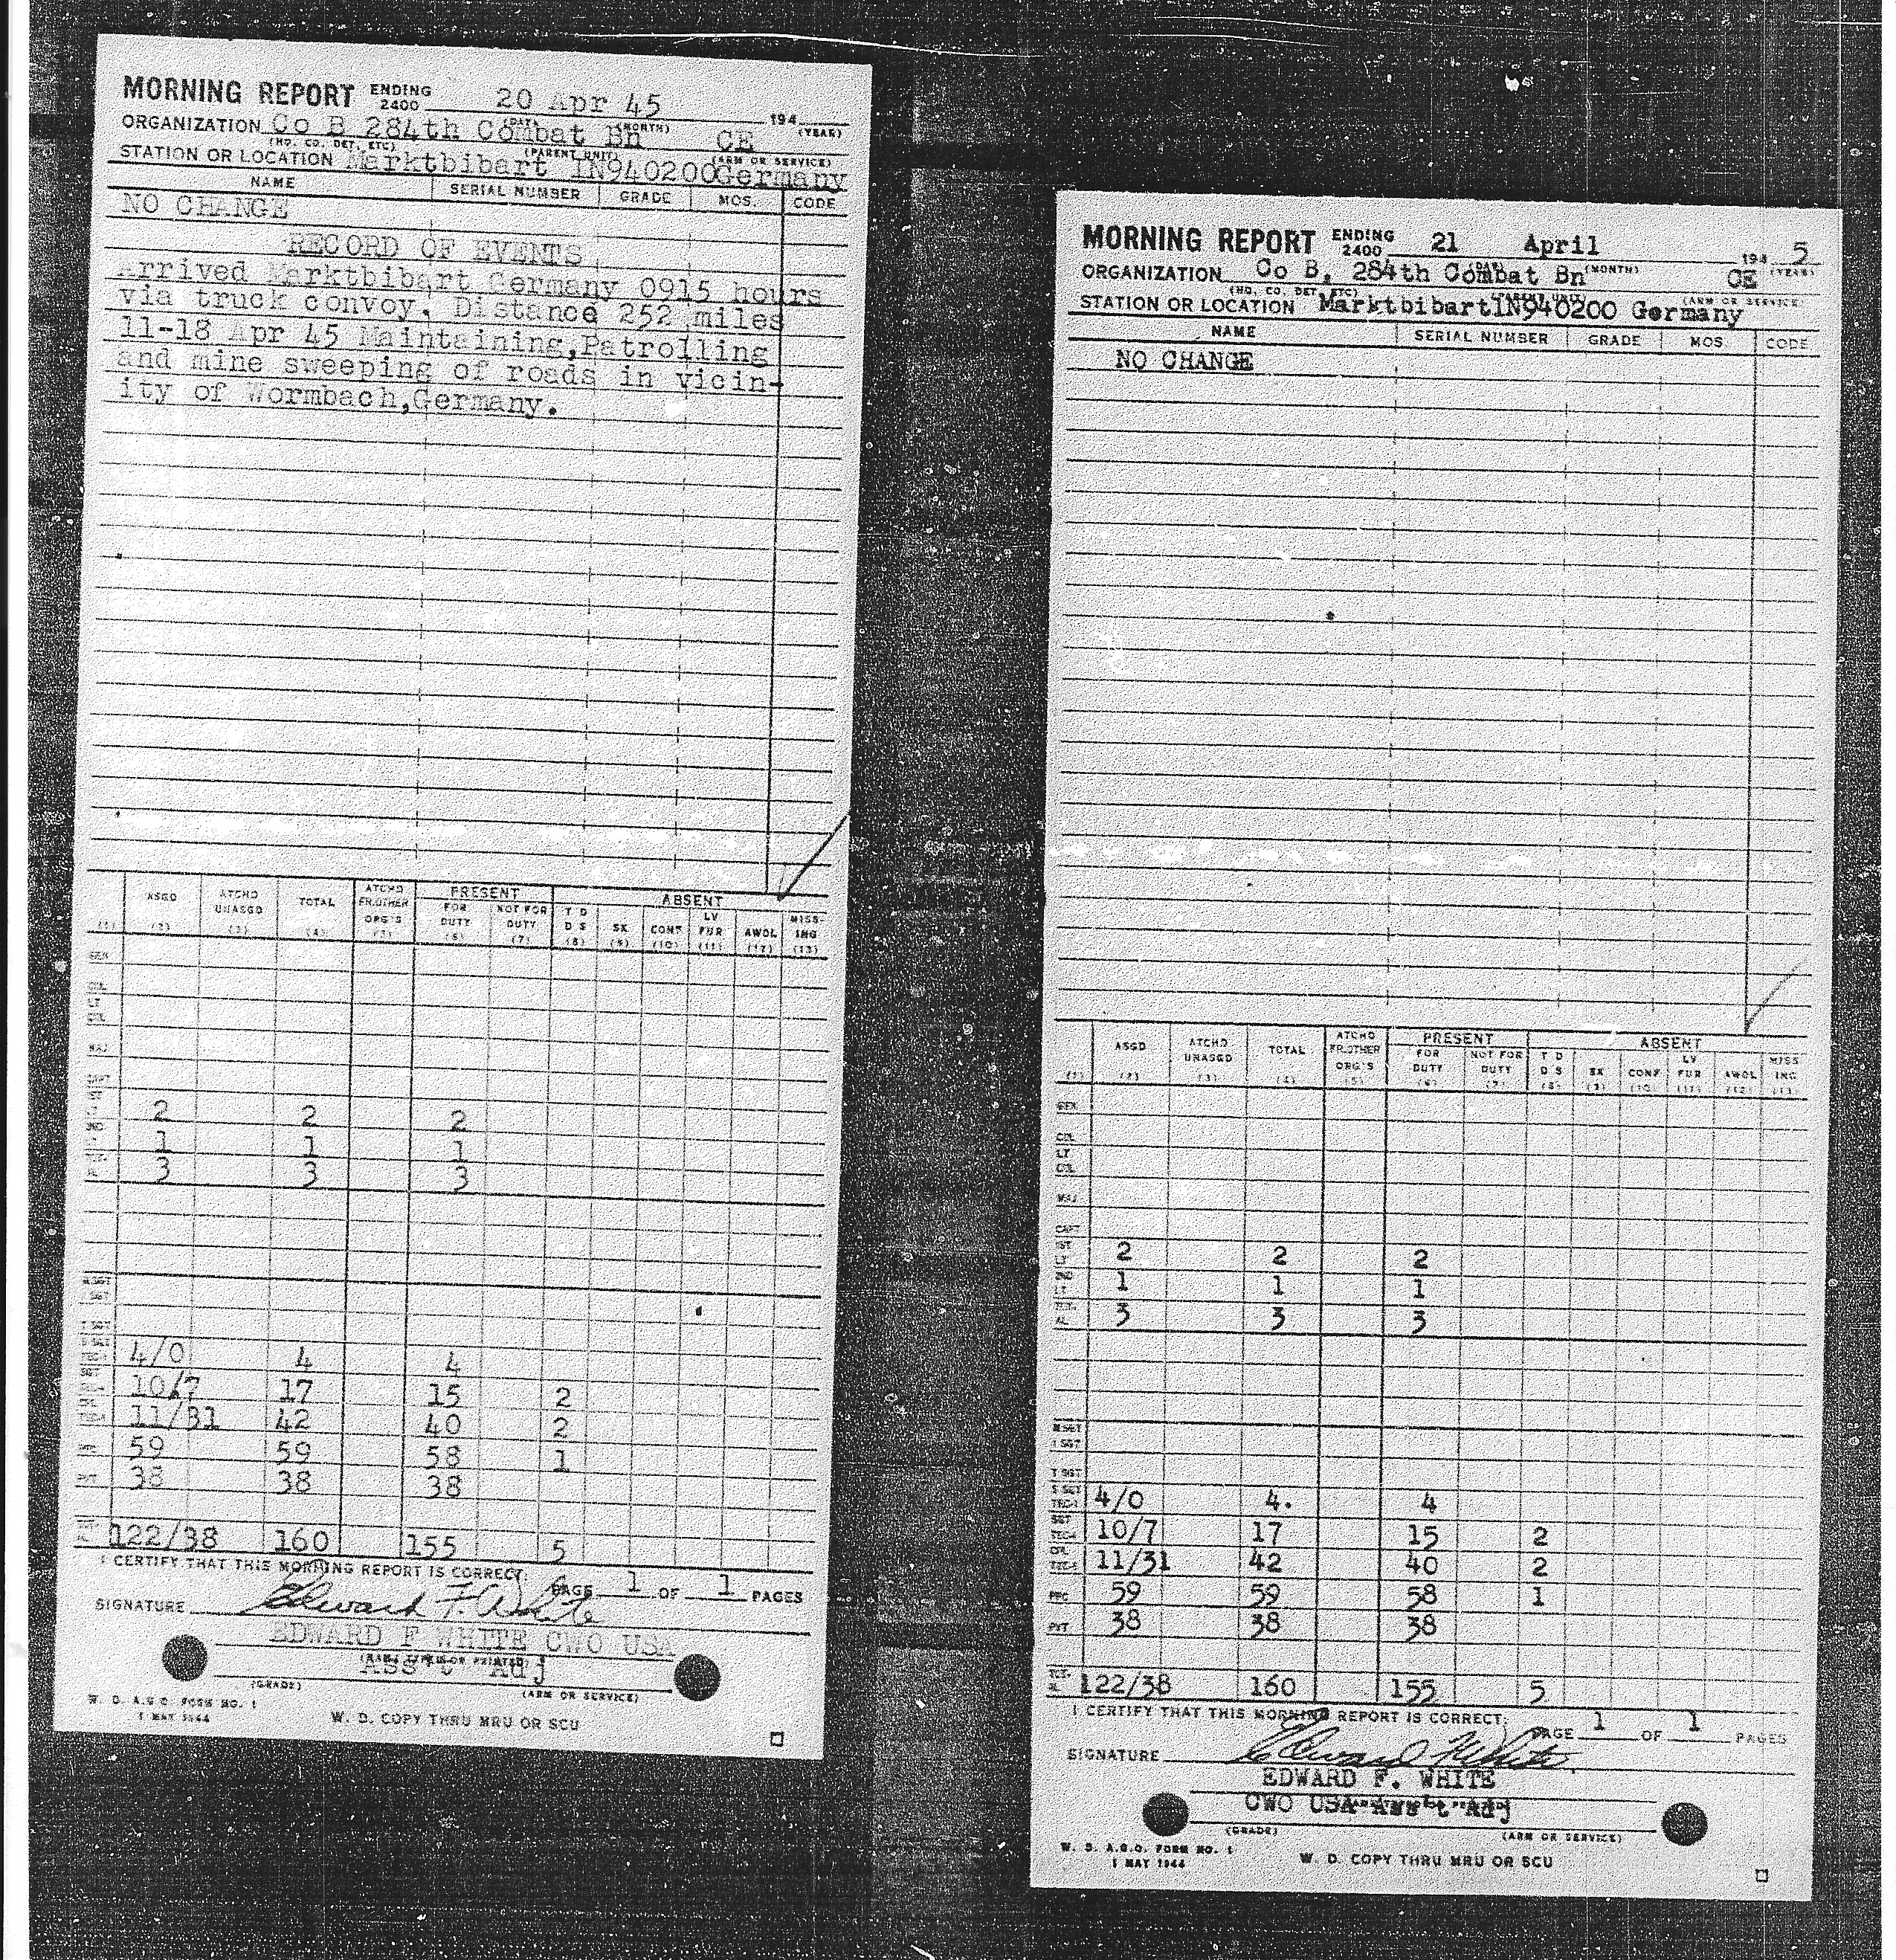 MORNING REPORT ENDING 2400 20 Apr 45 194
(DAY) (MONTH) (YEAR)
ORGANIZATION Co B 284th Combat Bn CE
(HQ. CO. DET, ETC) (PARENT UNIT) (ARM OR SERVICE)
STATION OR LOCATION Marktbibart 1N940200Germany
NAME SERIAL NUMBER GRADE MOS. CODE
NO CHANGE
RECORD OF EVENTS
Arrived Marktbibart Germany 0915 hours
via truck convoy. Distance 252 miles
11-18 Apr 45 Maintaining,Patrolling
and mine sweeping of roads in vicin-
ity of Wormbach,Germany.
PRESENT ABSENT
ASGD ATCHD UNASGD TOTAL ATCHD FR.OTHER ORG'S FOR DUTY NOT FOR DUTY T D D S SK CONF LV FUR AWOL MISS-ING
(1) (2) (3) (4) (5) (6) (7) (8) (9) (10) (11) (12) (13)
GEN
COL
LT COL
MAJ
CAPT
2 2 2
1 1 1
3 3 3
M SGT
T SGT
4/0 4 4
10/7 17 15 2
11/31 42 40 2
59 59 58 1
PVT 38 38 38
122/38 160 155 5
I CERTIFY THAT THIS MORNING REPORT IS CORRECT:
PAGE 1 OF 1 PAGES
SIGNATURE Edward F. White
EDWARD F WHITE CWO USA
(NAME TYPED OR PRINTED)
Ass't Adj
(GRADE) (ARM OR SERVICE)
W. D. A.G.O. FORM NO. 1
1 MAY 1944
W. D. COPY THRU MRU OR SCU
MORNING REPORT ENDING 2400 21 April 194 5
(DAY) (MONTH) (YEAR)
ORGANIZATION Co B, 284th Combat Bn CE
(HQ. CO. DET, ETC) (PARENT UNIT) (ARM OR SERVICE)
STATION OR LOCATION Marktbibart1N940200 Germany
NAME SERIAL NUMBER GRADE MOS CODE
NO CHANGE
PRESENT ABSENT
ASGD ATCHD UNASGD TOTAL ATCHD FR.OTHER ORG'S FOR DUTY NOT FOR DUTY T D D S SK CONF LV FUR AWOL MISS ING
(1) (2) (3) (4) (5) (6) (7) (8) (9) (10) (11) (12) (13)
GEN
COL
LT COL
MAJ
CAPT
1ST LT 2 2 2
2ND LT 1 1 1
TOT-AL 3 3 3
M SGT
1 SGT
T SGT
S SGT TEC-3 4/0 4. 4
SGT TEC-4 10/7 17 15 2
CPL TEC-5 11/31 42 40 2
PFC 59 59 58 1
PVT 38 38 38
TOT-AL 122/38 160 155 5
I CERTIFY THAT THIS MORNING REPORT IS CORRECT:
PAGE 1 OF 1 PAGES
SIGNATURE Edward F. White
EDWARD F. WHITE
CWO USA Ass't Adj
(GRADE) (ARM OR SERVICE)
W. D. A.G.O. FORM NO. 1
1 MAY 1944
W. D. COPY THRU MRU OR SCU